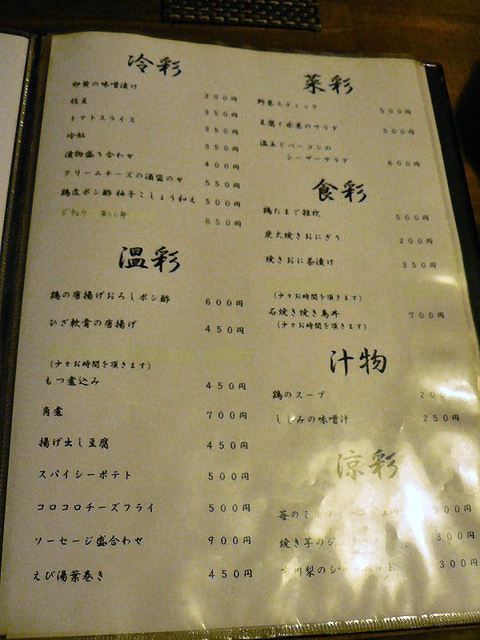 冷彩
卵黄の味噌漬け 300円
枝豆 350円
トマトスライス 350円
冷奴 350円
漬物盛り合わせ 400円
クリームチーズの酒盗のせ 550円
鶏皮ポン酢 柚子こしょう和え 500円
650円
温彩
鶏の唐揚げおろしポン酢 600円
ひざ軟骨の唐揚げ 450円
(少々お時間を頂きます)
もつ煮込み 450円
角煮 700円
揚げ出し豆腐 450円
スパイシーポテト 500円
コロコロチーズフライ 500円
ソーセージ盛合わせ 900円
えび湯葉巻き 450円
菜彩
野菜スティック 500円
豆腐と水菜のサラダ 500円
温玉とベーコンの
シーザーサラダ 600円
食彩
鶏たまご雑炊 500円
炭火焼きおにぎり 200円
焼きおに茶漬け 350円
(少々お時間を頂きます)
石焼き焼き鳥丼 700円
(少々お時間を頂きます)
汁物
鶏のスープ
しじみの味噌汁 250円
涼彩
苺の 300円
焼き芋の 300円
300円